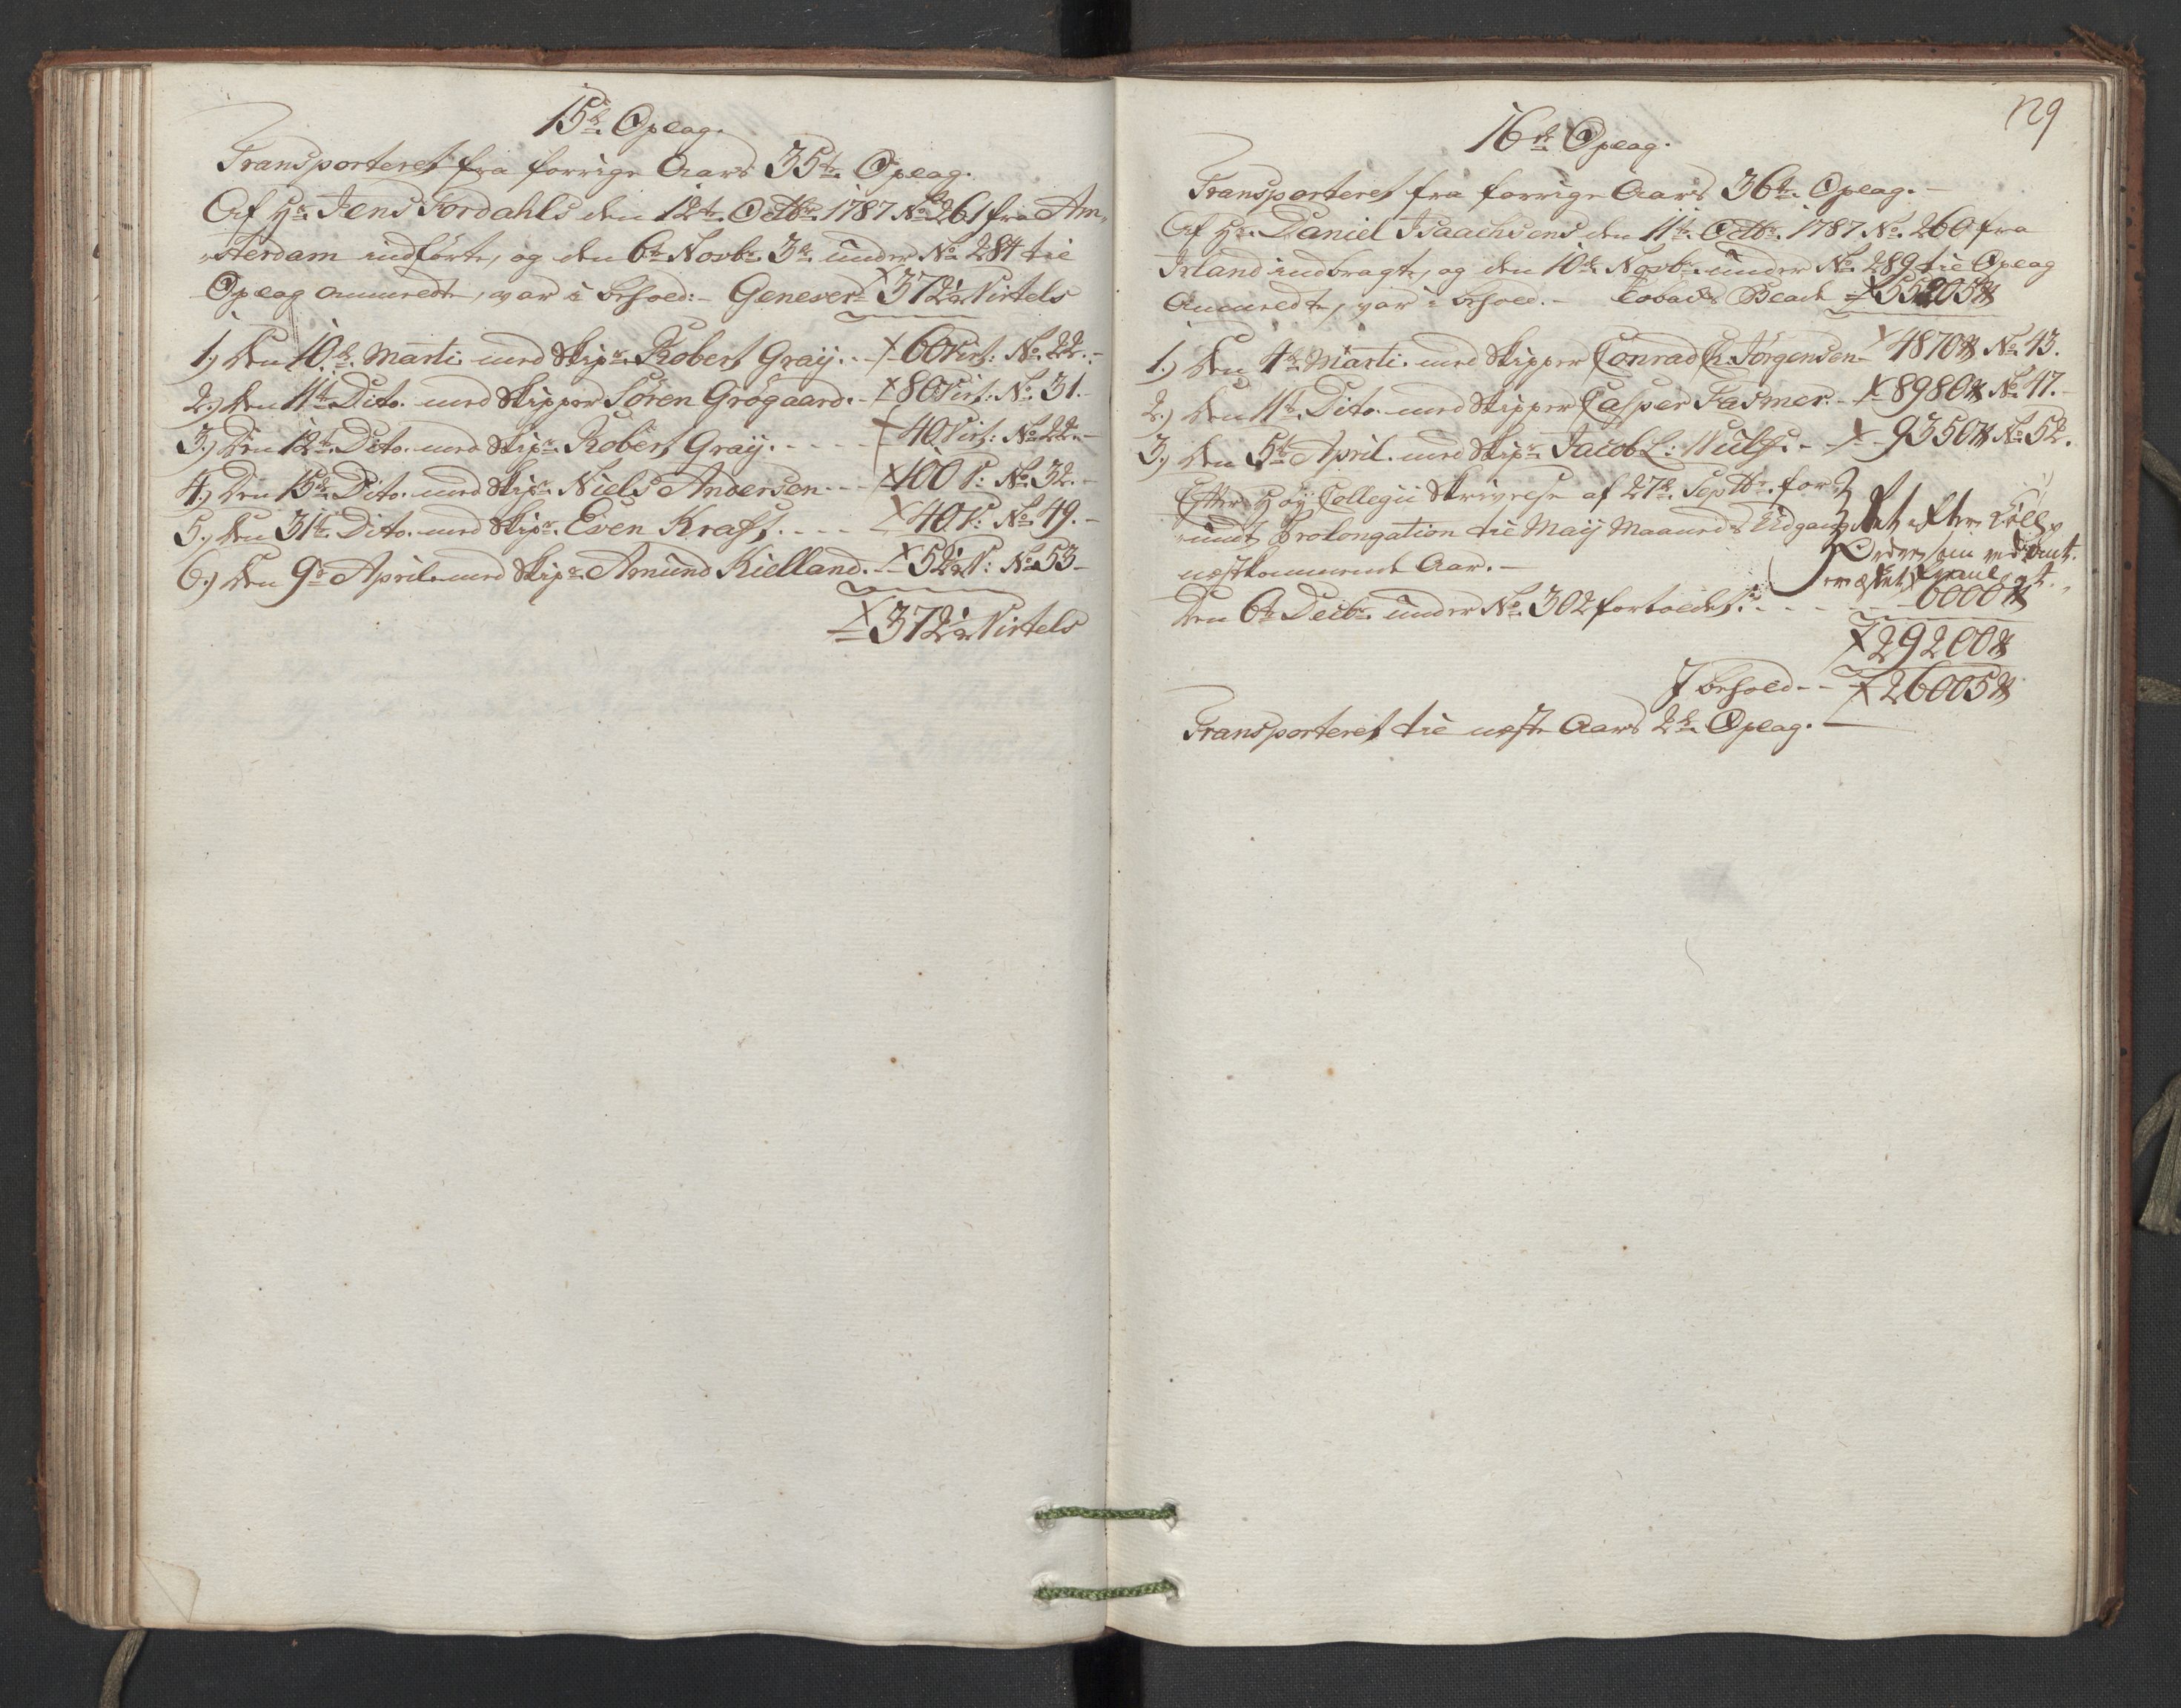 15de Oplag.
Transporteret fra forrige Aars 35te Oplag.
Af Hr. Jens Fordahls den 12te Octbr. 1787 No. 261 fra Am-
sterdam indförte, og den 6te Novbr. under No. 284 til
Oplag anmeldte, var i behold:- Genever 372½ Virtels
1.) Den 10de Marti med Skipr. Robert Graÿ. - 60 Virt: No. 22.-
2.) Den 11te Dito. med Skipper Sören Grögaard. - 80 Virt: No. 31.-
3.) Den 12te Dito. med Skipr. Robert Graÿ. - - - - 40 Virt: No. 22.-
4.) Den 15de Dito. med Skipr. Niels Andersen - - - 100 V: No. 32.-
5.) Den 31te Dito. med Skipr. Even Kraft. - - - - 40 V: No. 49.-
6.) Den 9de April. med Skipr. Amund Kielland. - 52½ V: No. 53-
372½ Virtels
129
16de Oplag.
Transporteret fra forrige Aars 36te Oplag.-
Af Hr. Daniel Isaachsens den 11te Octbr. 1787 No. 260 fra
Irland indbragte, og den 10de Novbr. under No. 289 til Oplag
Anmeldte, var i behold.- Tobacks Blade 55205 ℔
1.) Den 4de Marti. med Skipper Conrad Ch. Jörgensen- 4870 ℔ No. 43.
2.) Den 11te Dito. med Skipper Casper Fasmer.- 8980 ℔ No. 47.-
3.) Den 5te April. med Skipr. Jacob L: Wulf. - - 9350 ℔ No. 52.
Efter Höÿ Collegii Skrivelse af 27de Septbr. for-
undt Prolongation til Maÿ Maaneds Udgang
næstkommende Aar.-
Den 6te Decbr. under No. 302 fortoldet. - - - - 6000 ℔
29200 ℔
I behold - - 26005 ℔
Transporteret til næste Aars 2de Oplag.-